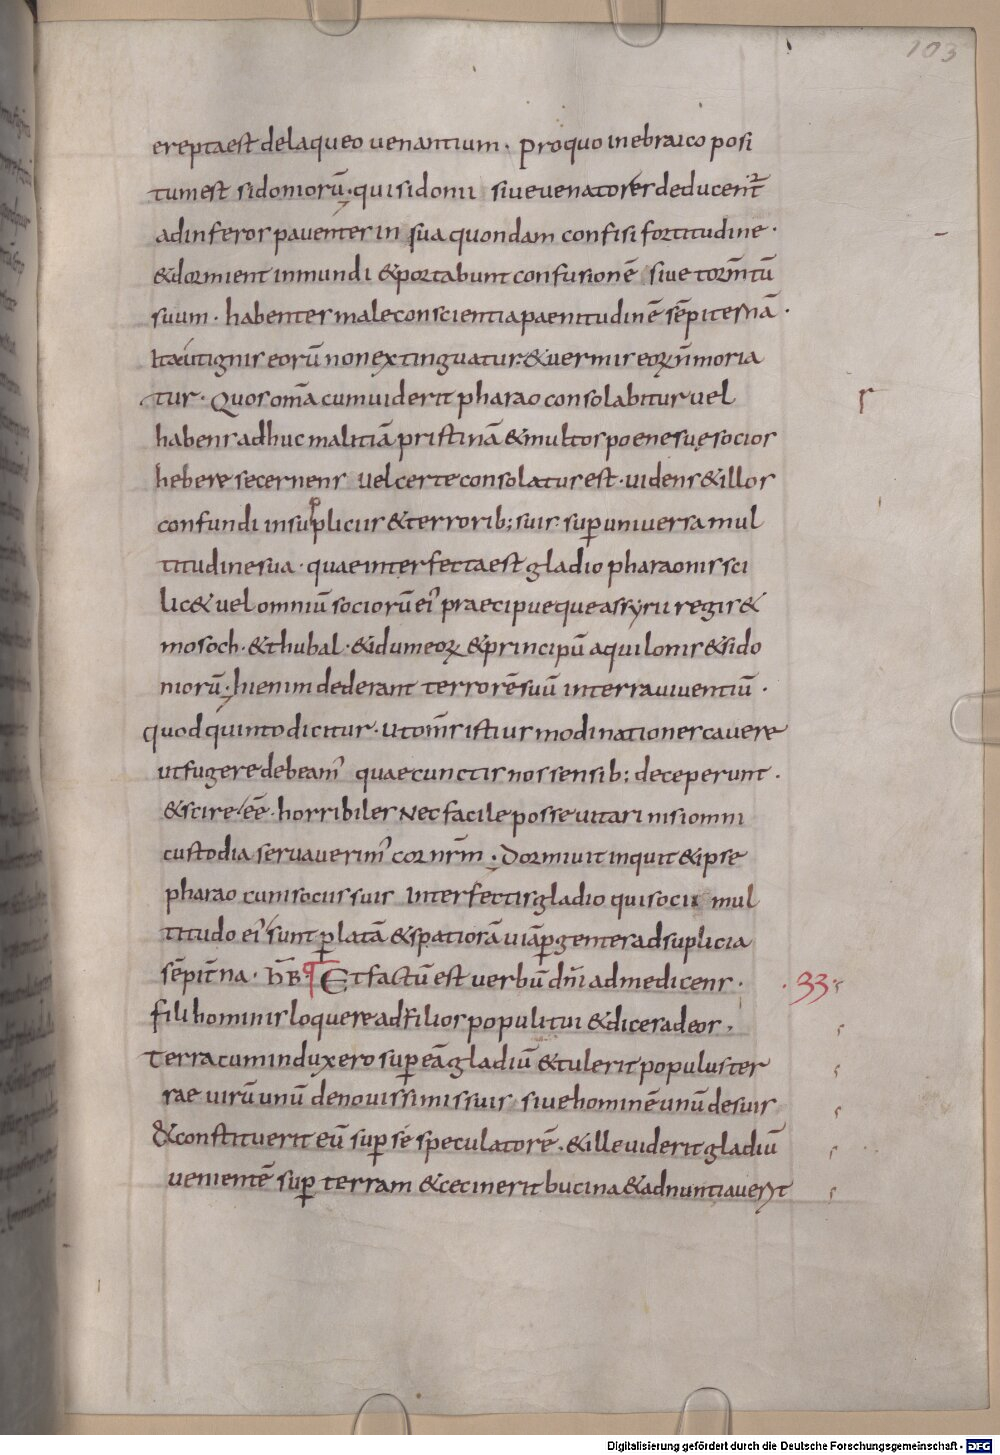 103
erepta est de laqueo uenantium. Pro quo in ebraico posi
tum est sidoniorū. qui sidonii siue uenatores deducent̃
ad inferos pauentes in sua quondam confisi fortitudine.
& dormient inmundi & portabunt confusionē siue torm̄tū
suum. habentes male conscientia paenitudinē sēpiternā.
Ita ut ignis eorū non extinguatur. & uermis eoꝝ n̄ moria
tur. Quos om̄a cum uiderit pharao consolabitur uel
habens adhuc malitiā pristinā & multos poene suę socios
hebere se cernens uel certe consolatus est. uidens & illos
confundi in suppliciis & terrorib; suis. suꝑ uniuersa mul
titudine sua. quae interfecta est gladio pharaonis sci
lic& uel omniū sociorū ei᾽ praecipueque assyrii regis &
mosoch. & thubal. & idumeoꝝ & principū aquilonis & sido
niorū. hi enim dederant terrorē suū in terra uiuentiū.
quod quinto dicitur. ut om̄s istius modi nationes cauere
ut fugere debeam᾽ quae cunctis nos sensib; deceperunt.
& scire. eē. horribiles Nec facile posse uitari nisi omni
custodia seruauerim᾽ cor nr̄m. Dormiuit inquit & ipse
pharao cum sociis suis Interfectis gladio qui socii mul
titudo ei᾽ sunt ꝑ latā & spatiorā uiā ꝑgentes ad suplicia
sēpit̄na. h̄B. Et factū est uerbū dn̄i ad me dicens.
33
fili hominis loquere ad filios populi tui & dices ad eos.
Terra cum induxero suꝑ eā gladiū & tulerit populus ter
rae uirū unū de nouissimis suis siue hominē unū de suis
& constituerit eū suꝑ se speculatorē. & ille uiderit gladiū
uenientē suꝑ terram & cecinerit bucina & adnuntiauerit
Digitalisierung gefördert durch die Deutsche Forschungsgemeinschaft - DFG